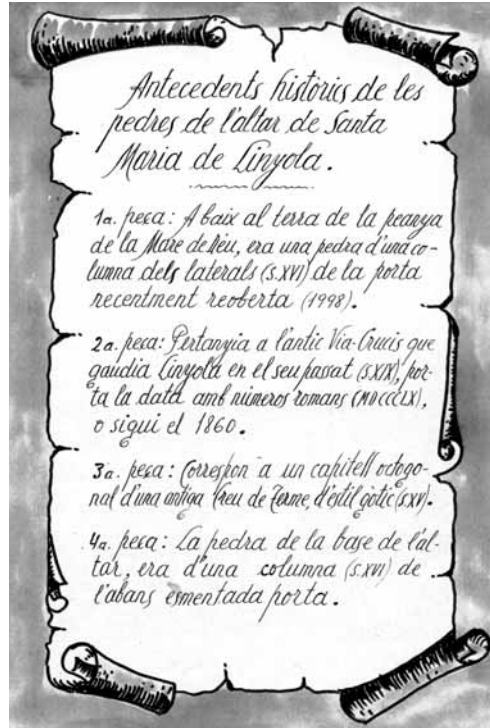 Antecedents històrics de les
pedres de l'altar de Santa
Maria de Linyola.
1a. peça: A baix al terra de la peanya
de la Mare de Déu, era una pedra d'una co-
lumna dels laterals (S.XVI) de la porta
recentment reoberta (1998).
2a. peça: Pertanyia a l'antic Via-Crucis que
gaudia Linyola en el seu passat (S.XIX), por-
ta la data amb números romans (MDCCCLX),
o sigui el 1860.
3a. peça: Correspon a un capitell octogo-
nal d'una antiga Creu de Terme, d'estil gòtic (S.XV).
4a. peça: La pedra de la base de l'al-
tar, era d'una columna (S.XVI) de
l'abans esmentada porta.